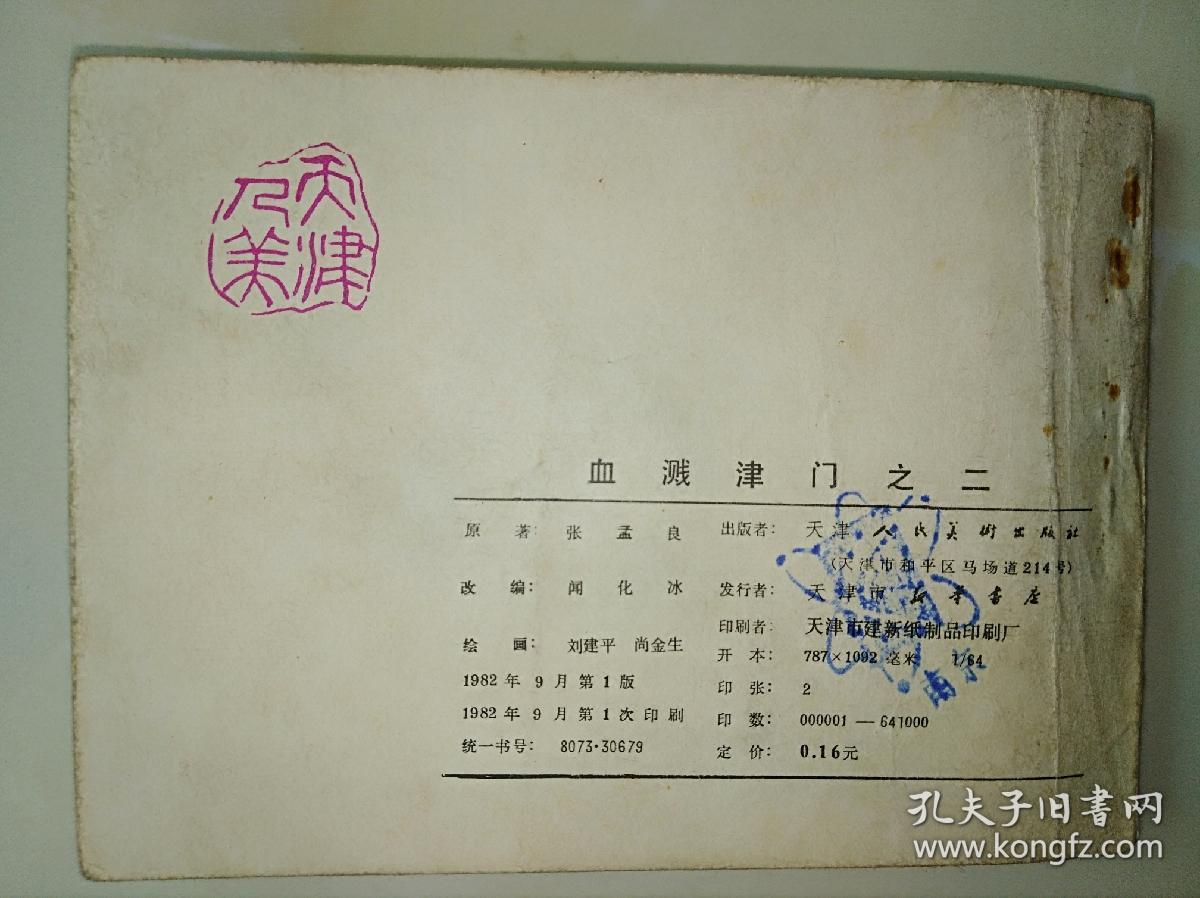 天津
人美
血溅津门之二
原著：张孟良
改编：闻化冰
绘画：刘建平 尚金生
1982年9月第1版
1982年9月第1次印刷
统一书号：8073·30679
出版者：天津人民美術出版社
（天津市和平区马场道214号）
发行者：天津市新华書店
印刷者：天津市建新纸制品印刷厂
开本：787×1092毫米 1/64
印张：2
印数：000001—641000
定价：0.16元
南京
孔夫子旧書网
www.kongfz.com